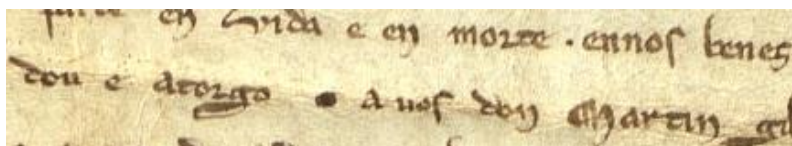 parte en vida e en morte . ennos benes
dou e atorgo . a uos don Martin gil